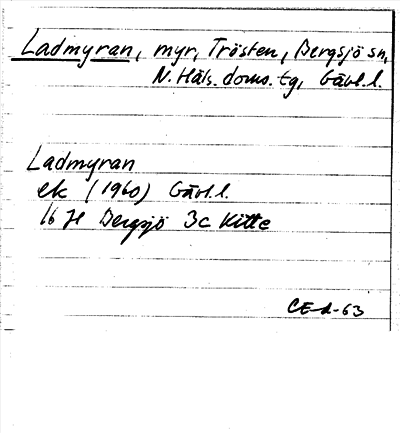 Ladmyran, myr, Trösten, Bergsjö sn,
N. Häls. doms. tg, Gävl.l.
Ladmyran
ek (1960) Gävl.l.
16 H Bergsjö 3c Kitte
63